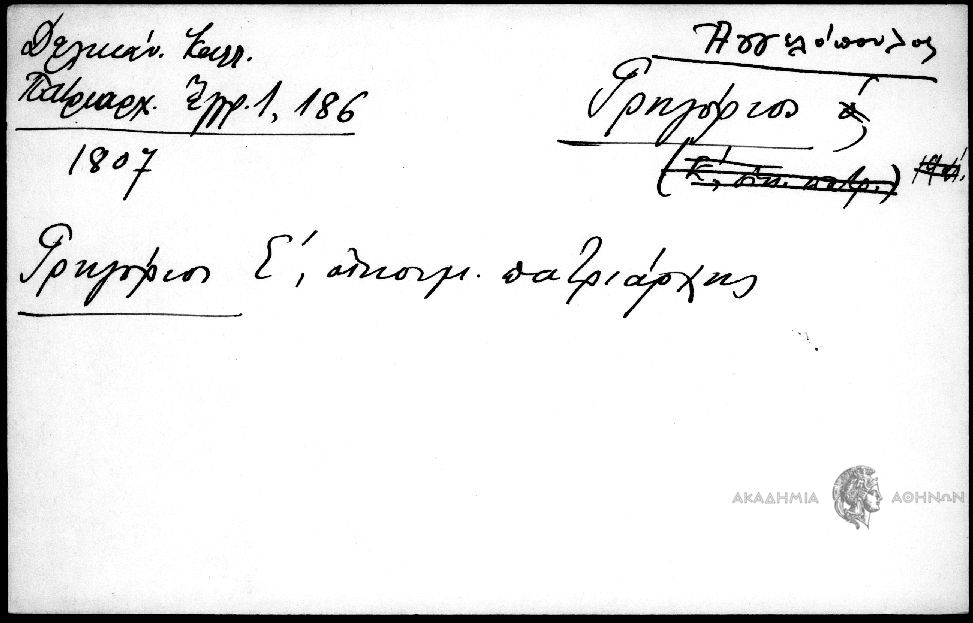 Δελικάν. Καλλ.
Πατριαρχ. Ἔγγρ. 1, 186
1807
Ἀγγελόπουλος
Γρηγόριος
(Ε΄, οἰκ. πατρ.)
Γρηγόριος Ε΄, οἰκουμ. πατριάρχης
ΑΚΑΔΗΜΙΑ ΑΘΗΝΩΝ